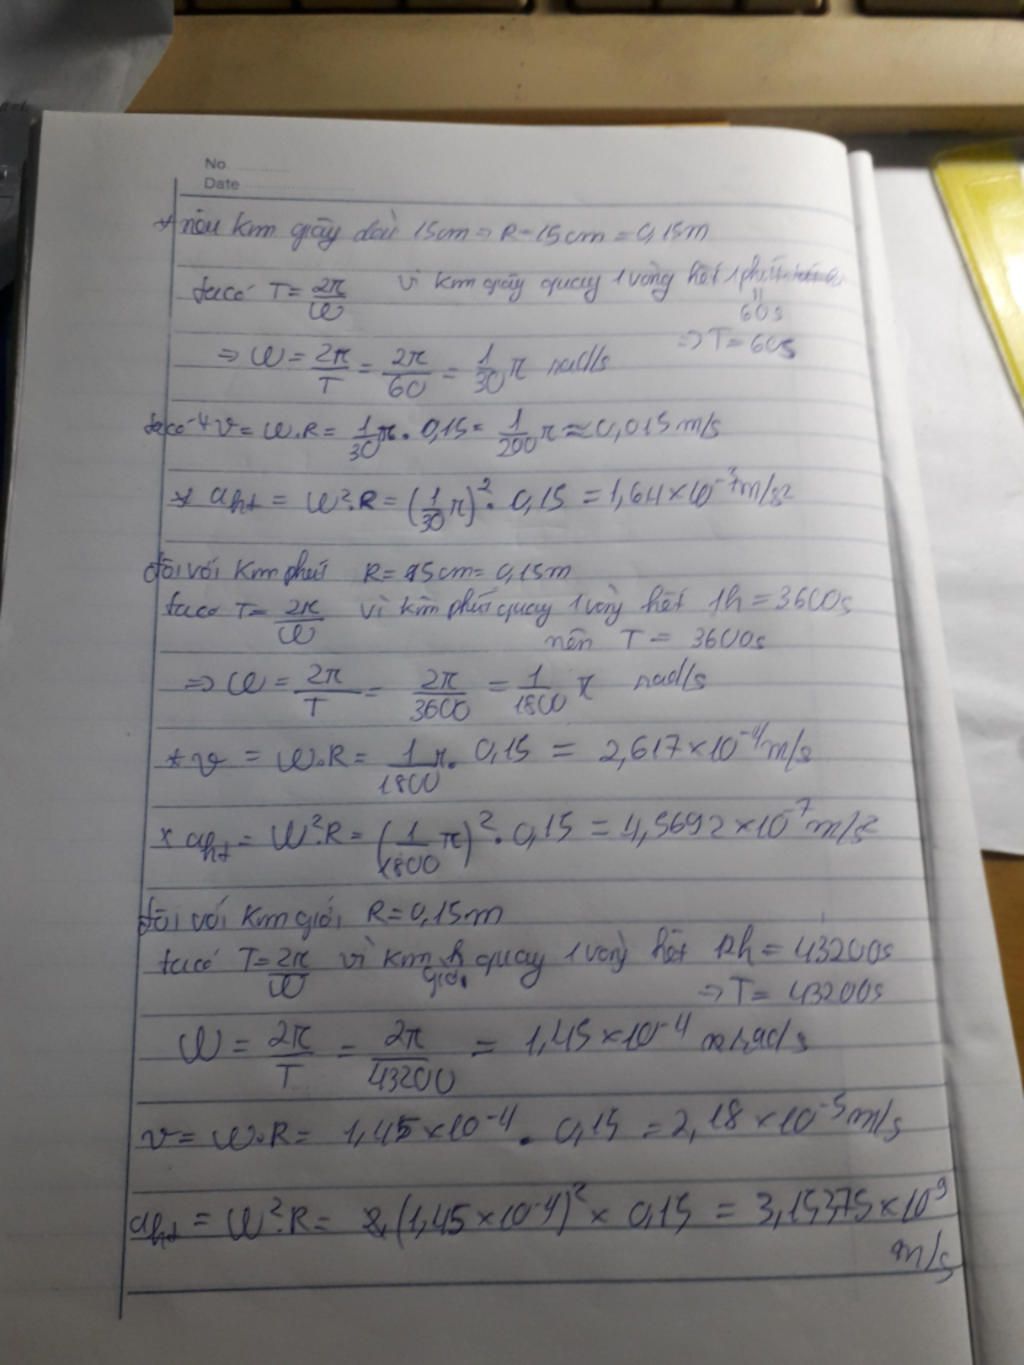 No
Date
* nếu kim giây dài 15cm => R = 15cm = 0,15m
ta có T = 2π/ω vì kim giây quay 1 vòng hết 1 phút
= 60s
=> T = 60s
=> ω = 2π/T = 2π/60 = 1/30 π rad/s
ta có * v = ω.R = 1/30 π . 0,15 = 1/200 π ≈ 0,015 m/s
* aht = ω².R = (1/30 π)² . 0,15 = 1,64 × 10⁻³ m/s²
đối với kim phút R = 15cm = 0,15m
ta có T = 2π/ω vì kim phút quay 1 vòng hết 1h = 3600s
nên T = 3600s
=> ω = 2π/T = 2π/3600 = 1/1800 π rad/s
* v = ω.R = 1/1800 π . 0,15 = 2,617 × 10⁻⁴ m/s
* aht = ω².R = (1/1800 π)² . 0,15 = 4,5692 × 10⁻⁷ m/s²
đối với kim giờ R = 0,15m
ta có T = 2π/ω vì kim giờ quay 1 vòng hết 12h = 43200s
=> T = 43200s
ω = 2π/T = 2π/43200 = 1,45 × 10⁻⁴ rad/s
v = ω.R = 1,45 × 10⁻⁴ . 0,15 = 2,18 × 10⁻⁵ m/s
aht = ω².R = (1,45 × 10⁻⁴)² × 0,15 = 3,15375 × 10⁹
m/s